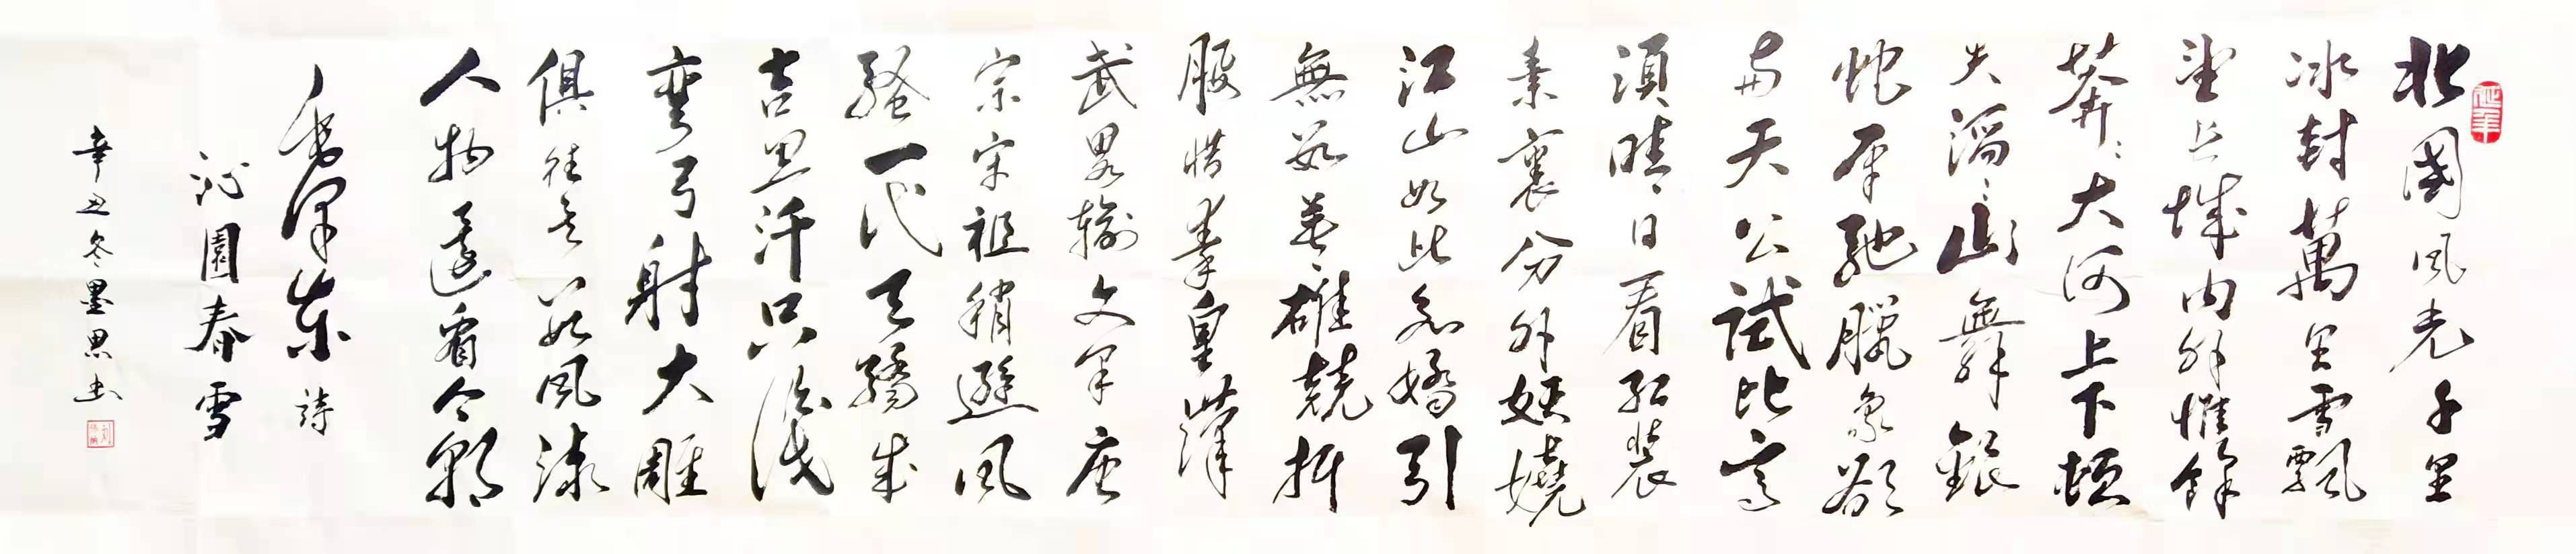 延年
北國風光千里
冰封萬里雪飄
望长城内外惟餘
莽〻大河上下頓
失滔〻山舞銀
蛇原馳臘象欲
与天公試比高
須晴日看紅装
素裹分外妖嬈
江山如此多嬌引
無數英雄競折
腰惜秦皇漢
武畧輸文采唐
宗宋祖稍遜風
騷一代天驕成
吉思汗只識
彎弓射大雕
俱往矣數風流
人物還看今朝
毛澤東詩
沁園春雪
辛丑冬墨思书